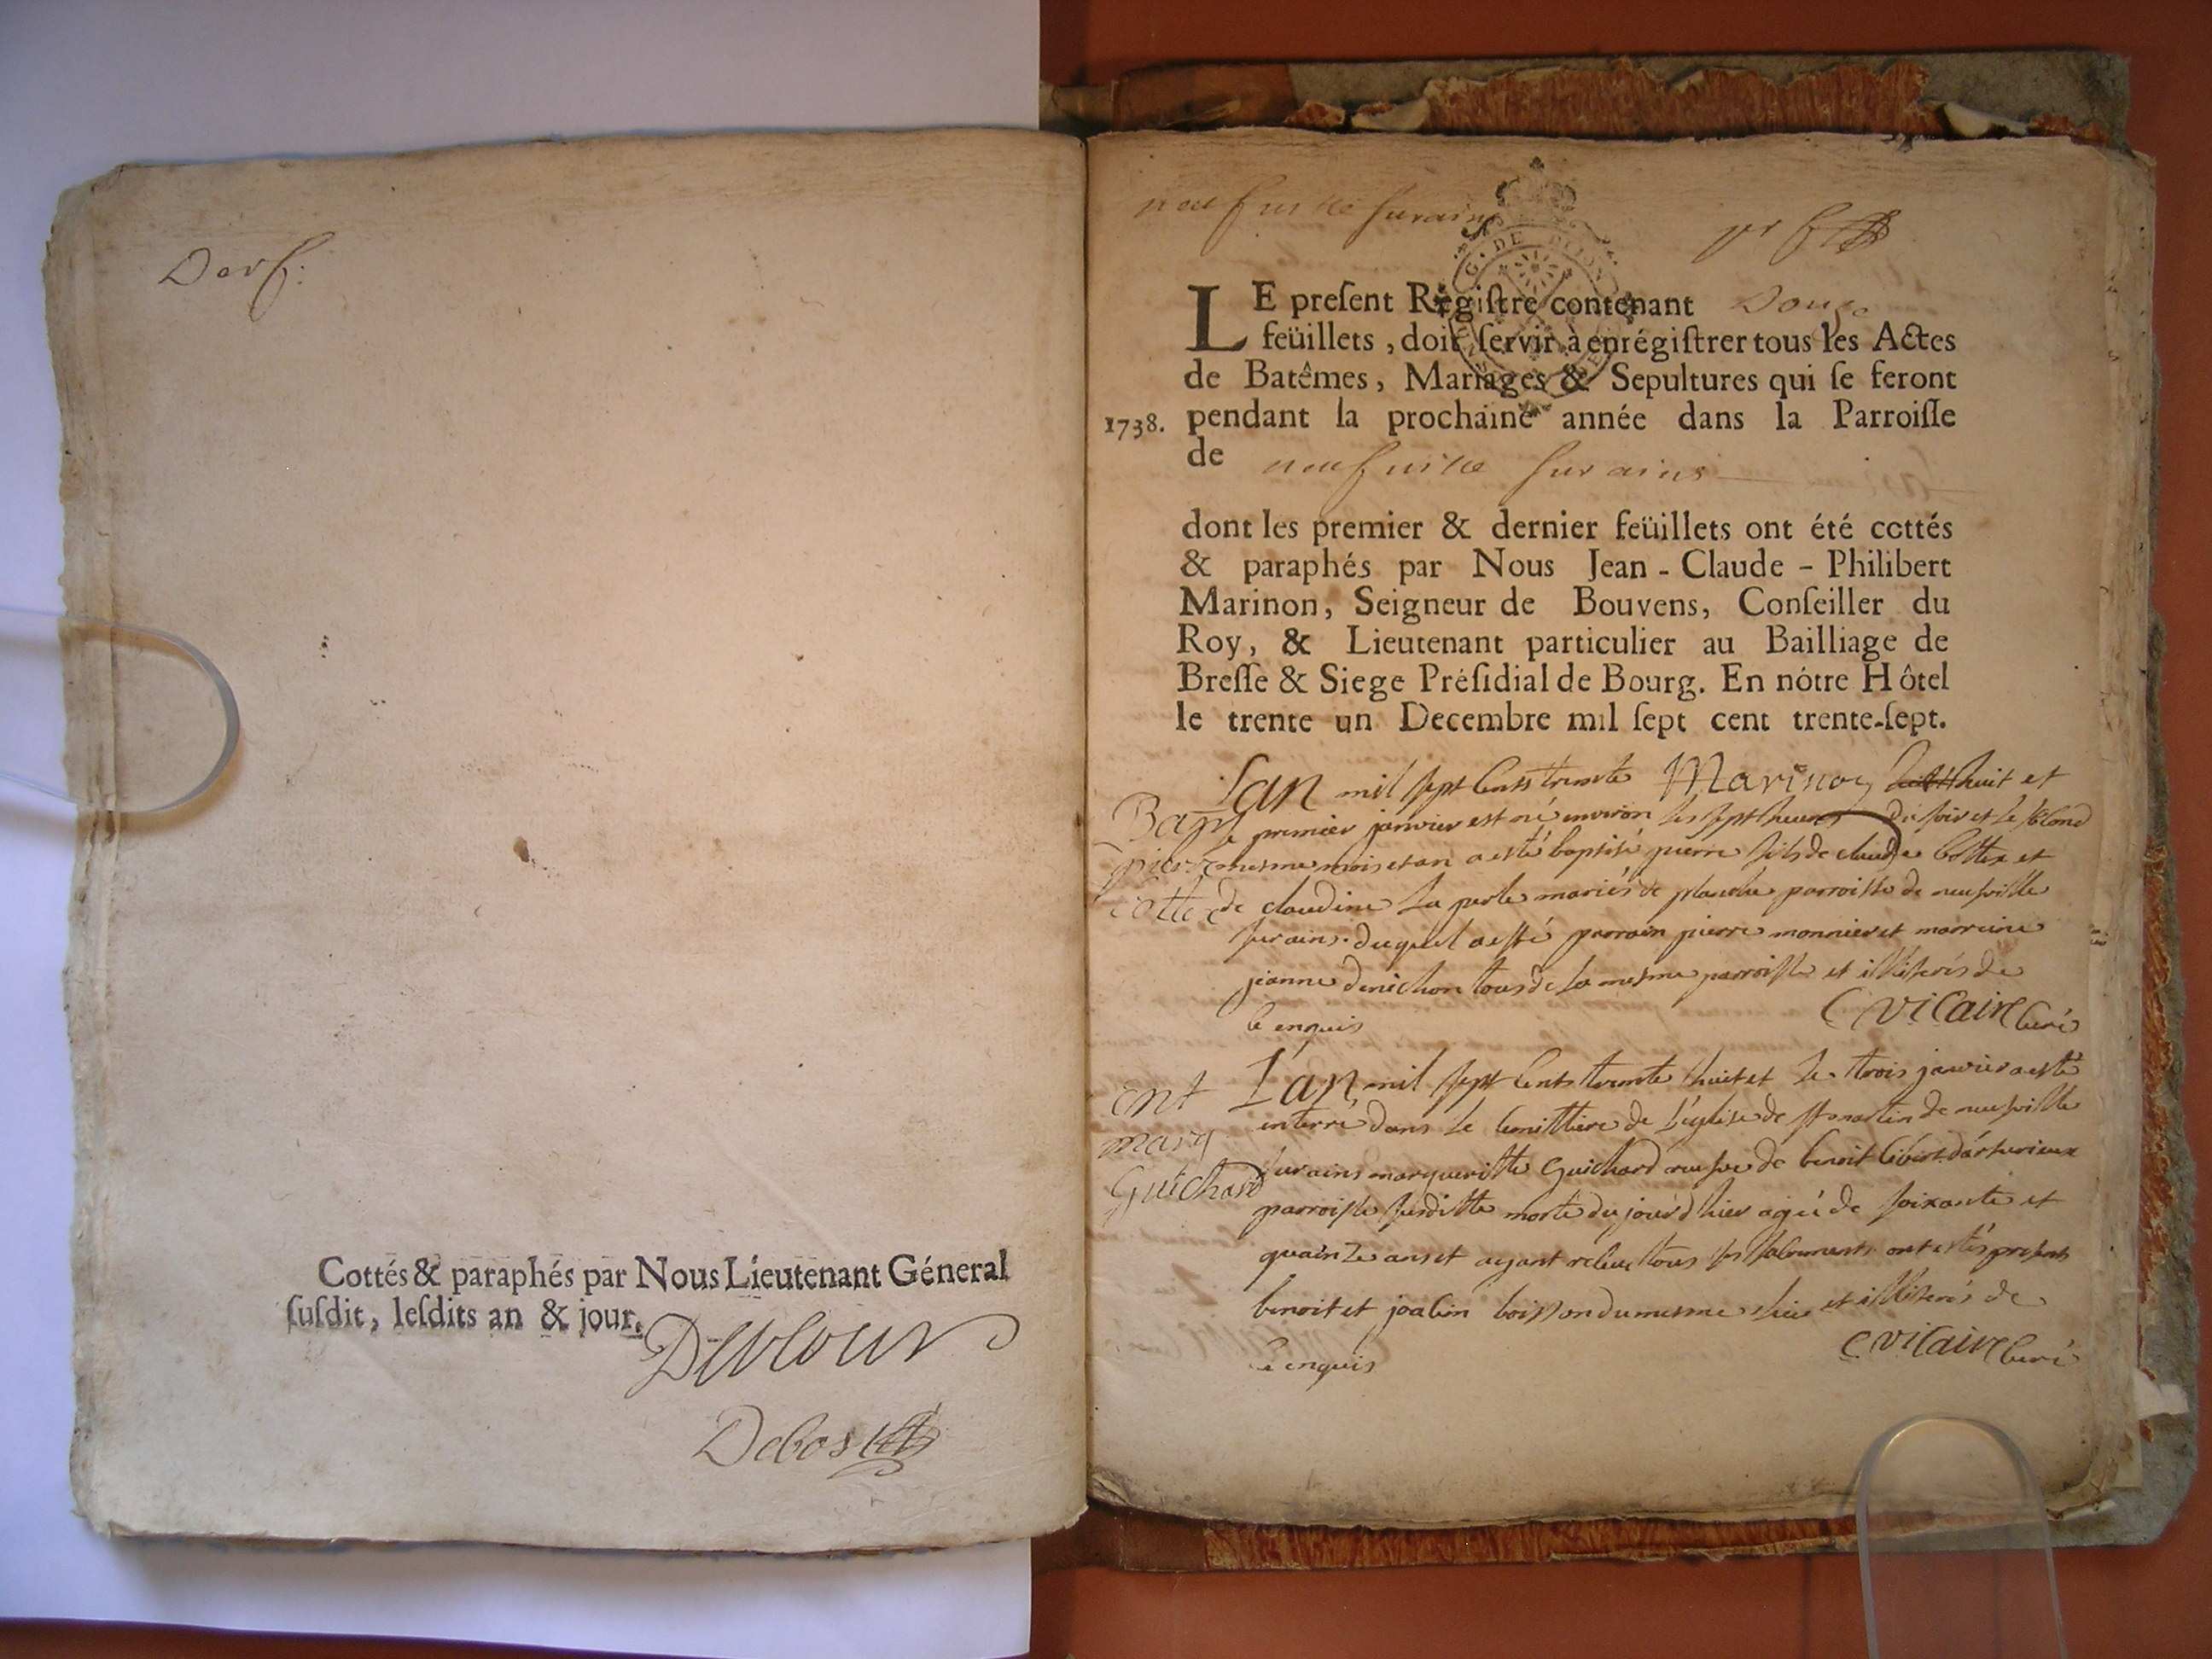 Der f.
Cottés & paraphés par Nous Lieutenant Géneral
ſuſdit, leſdits an & jour.
neufville surains
pr f
G. DE DIJON
LE preſent Régiſtre contenant Douze
feüillets, doit ſervir à enrégiſtrer tous les Actes
de Batêmes, Mariages & Sepultures qui ſe feront
1738. pendant la prochaine année dans la Parroiſſe
de neufville surains
dont les premier & dernier feüillets ont été cottés
& paraphés par Nous Jean-Claude-Philibert
Marinon, Seigneur de Bouvens, Conſeiller du
Roy, & Lieutenant particulier au Bailliage de
Breſſe & Siege Préſidial de Bourg. En nôtre Hôtel
le trente un Decembre mil ſept cent trente-ſept.
Marinon
Lan mil sept cents trente huit et
Bap le premier janvier est né environ les sept heures du soir et le second
pierre mesme mois et an a esté baptisé pierre fils de claude cottex et
cottex de claudine La perle mariés de planche parroisse de neufville
surains. duquel a esté parrain pierre monnier et marreine
jeanne denichon tous de la mesme parroisse et illiterés de
ce enquis C vicaire curé
ent L'an mil sept cents trente huit et le trois janvier a esté
enterré dans le cemittiere de L'eglise de st martin de neufville
marg
Guichard surains margueritte Guichard veufve de benoit
parroisse susditte morte du jourd'hier agée de soixante et
quainze ans et ayant reçeue tous ses sacrements ont estés presents
benoit et joachin boisson du mesme lieu et illiterés de
ce enquis C vicaire curé